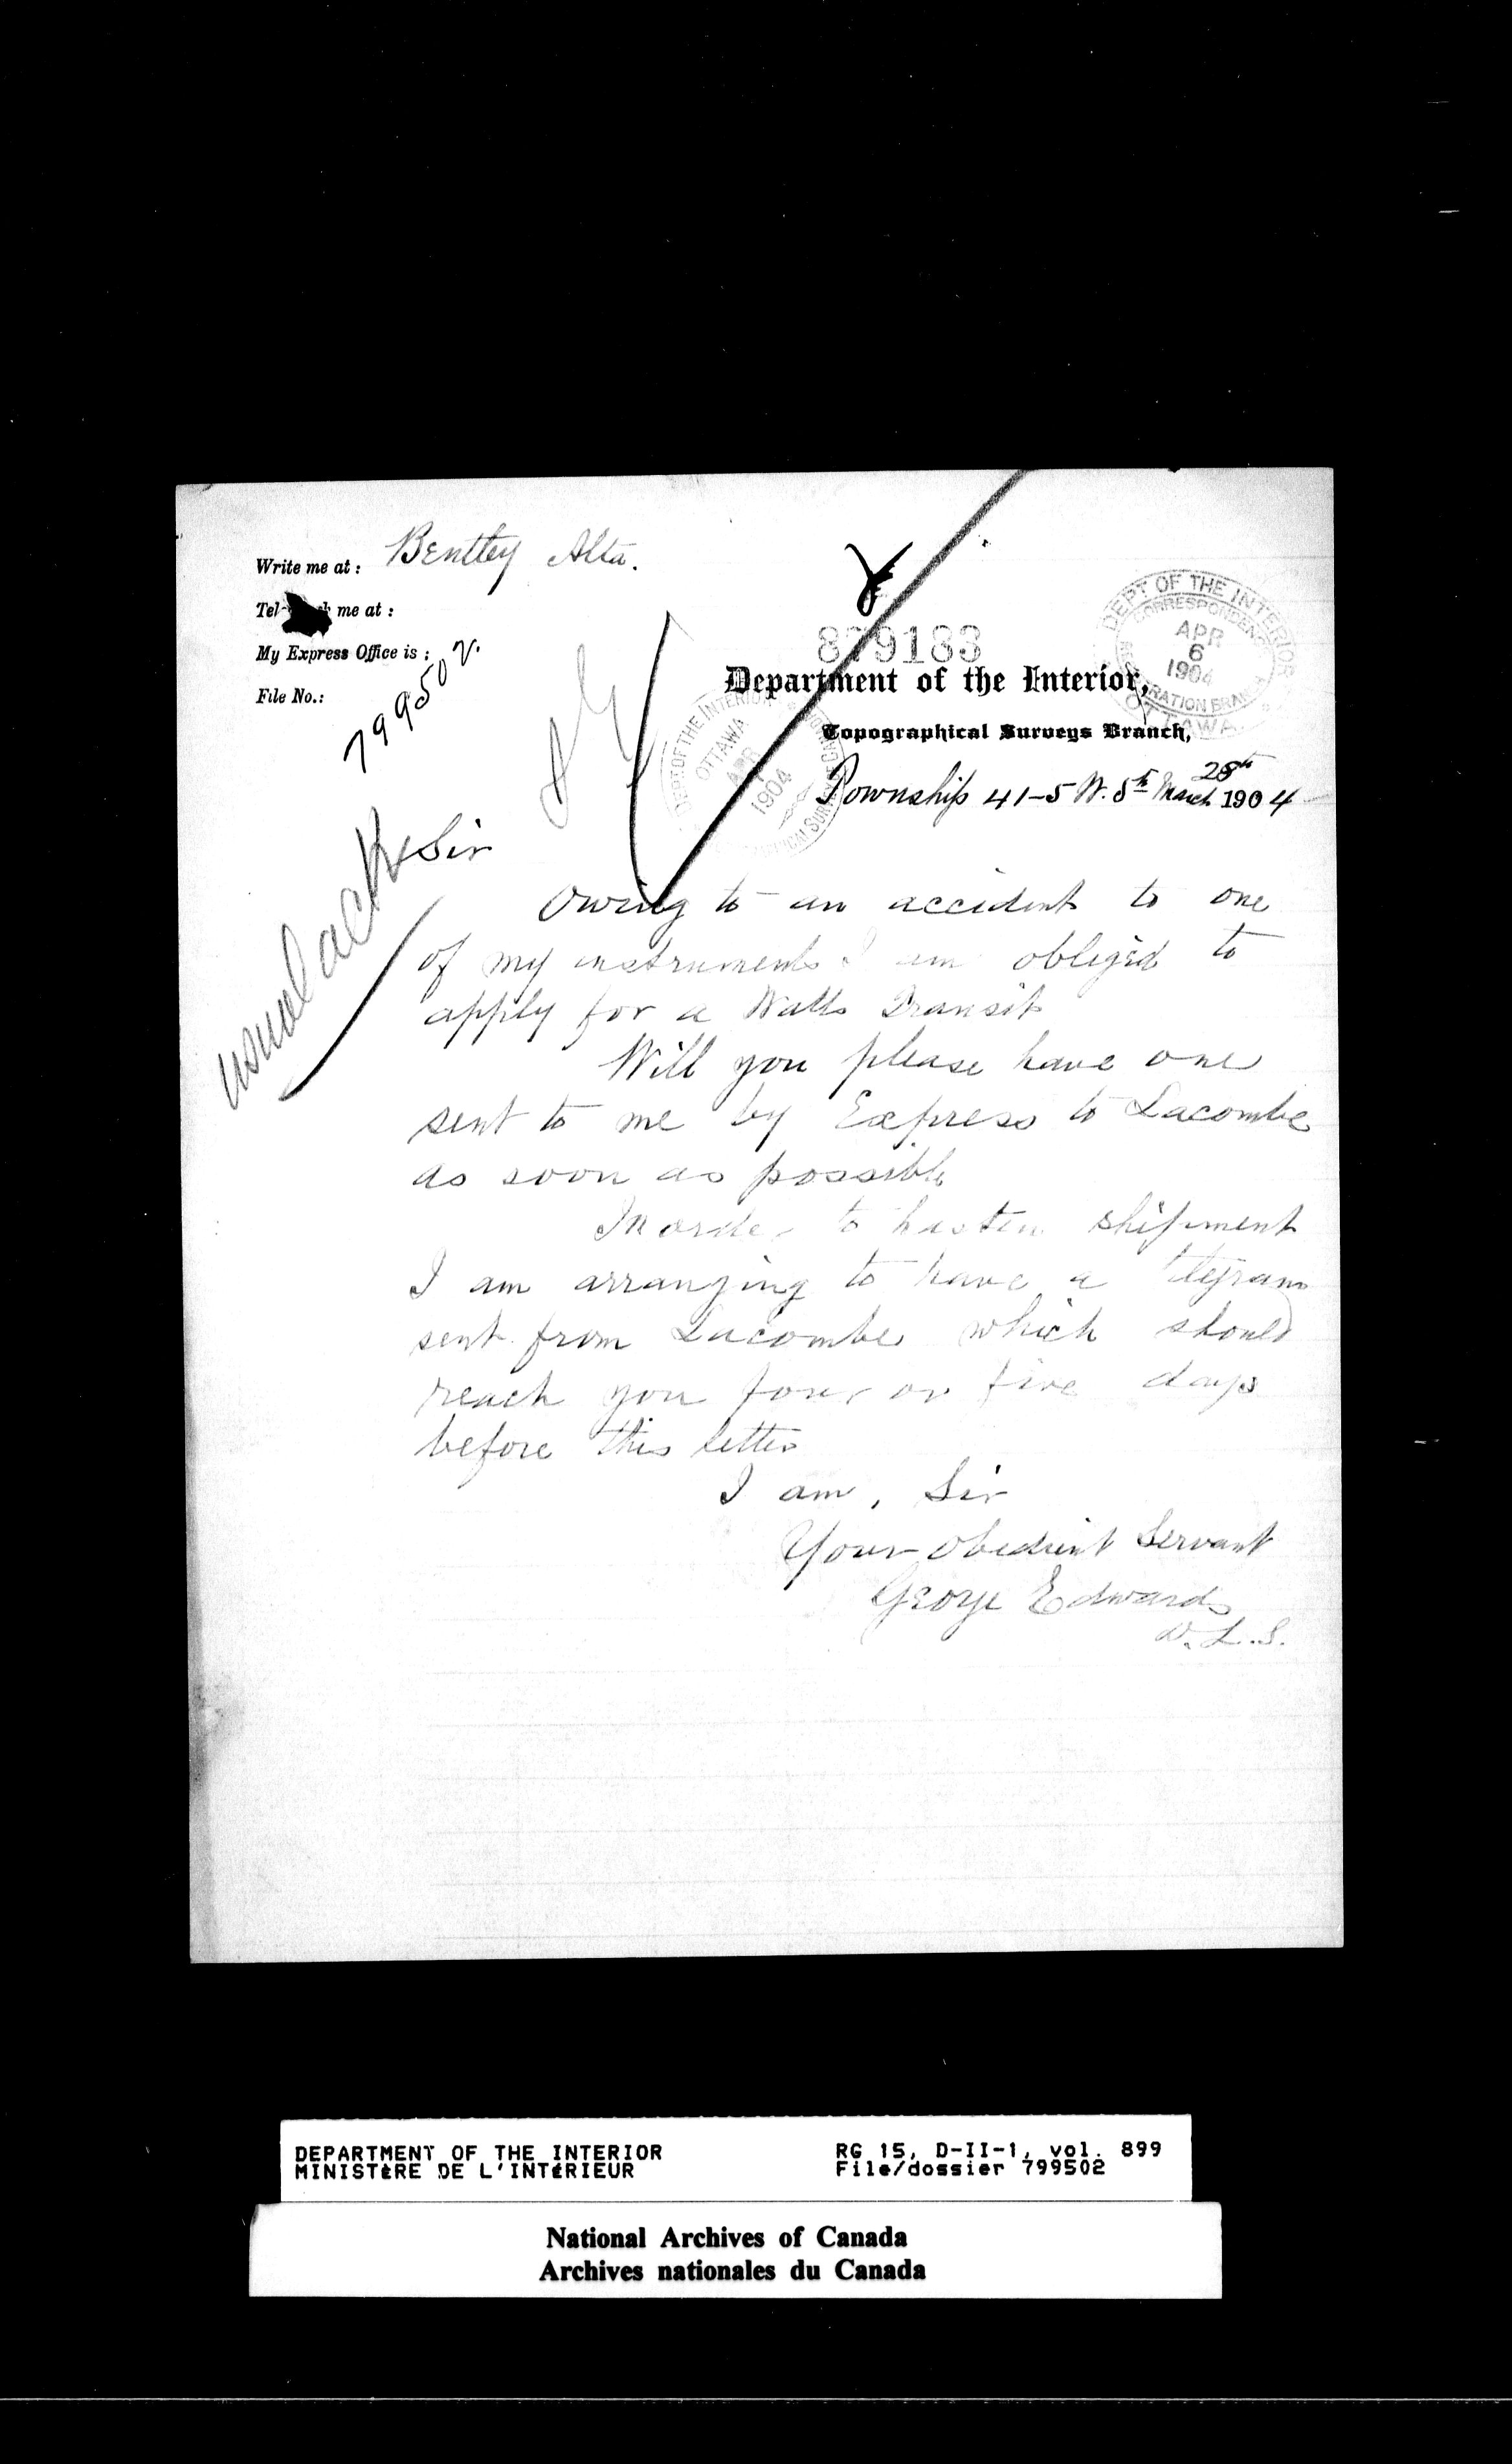 Write me at : Bentley Alta.
Tel me at :
My Express Office is :
File No.:
799502.
879183
Department of the Interior,
Topographical Surveys Branch,
DEPT OF THE INTERIOR
CORRESPONDENCE
APR
6
1904
REGISTRATION BRANCH
OTTAWA
DEPT OF THE INTERIOR
OTTAWA
APR
1904
Township 41-5 W. 5th March 28th 1904
usual ack
Sir
Owing to an accident to one
of my instruments I am obliged to
apply for a Watts Transit
Will you please have one
sent to me by Express to Lacombe
as soon as possible
In order to hasten shipment
I am arranging to have a telegram
sent from Lacombe which should
reach you four or five days
before this letter
I am, Sir
Your obedient Servant
George Edwards
D.L.S.
DEPARTMENT OF THE INTERIOR
MINISTÈRE DE L'INTÉRIEUR
RG 15, D-II-1, vol. 899
File/dossier 799502
National Archives of Canada
Archives nationales du Canada